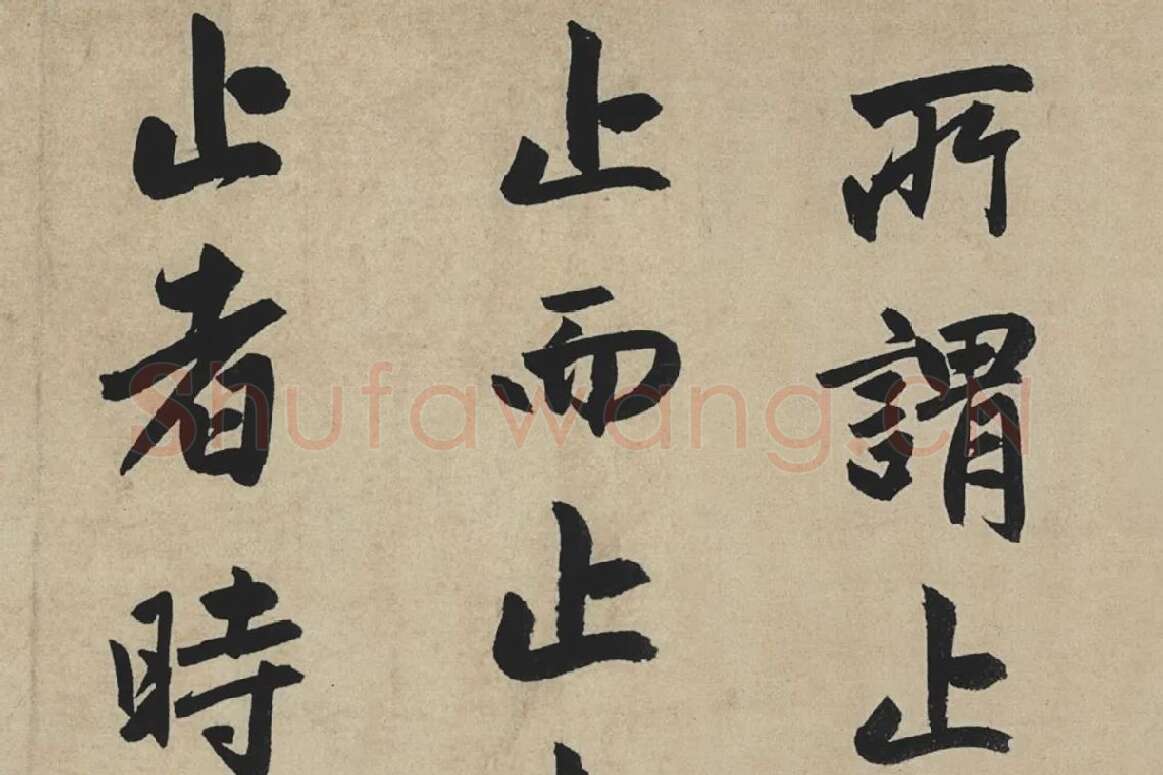 所謂止
止而止
止者時
Shufawang.CN